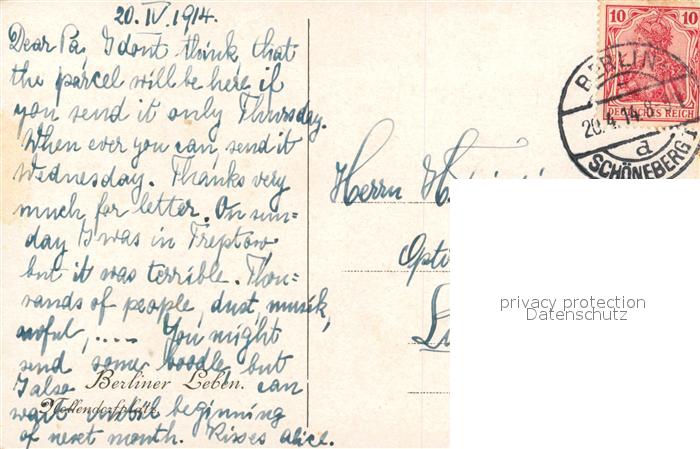 20. IV. 1914.
Dear Pa, I dont think, that
the parcel will be here if
you send it only Thursday.
When ever you can, send it
Wednesday. Thanks very
much for letter. On sun=
day I was in Treptow
but it was terrible. Thou=
sands of people, dust, musik,
awful, .... You might
send some boodle but
I also can
wait until beginning
of next month. Kisses Alice.
Berliner Leben.
Nollendorfplatz.
10 10
DEUTSCHES REICH
BERLIN
20.4.14.8
a
SCHÖNEBERG 1
Herrn
Opti
privacy protection
Datenschutz